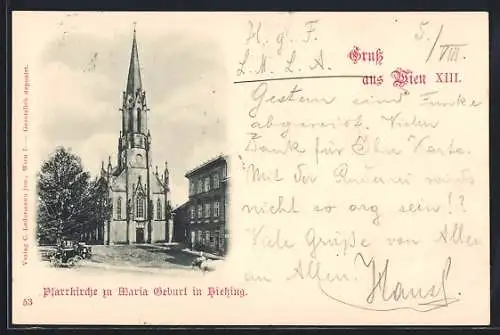 H. g. F.
L. N. L. A.
5./VIII.
Gruß
aus Wien XIII.
Gestern sind Funke
abgereist. Vielen
Dank für Ihre Karte.
Mit der wird's
nicht so arg sein!?
Viele Grüße von Allen
an Allen.
Hansl
Pfarrkirche zu Maria Geburt in Hietzing.
Verlag C. Ledermann jun., Wien I. — Gesetzlich deponirt.
53